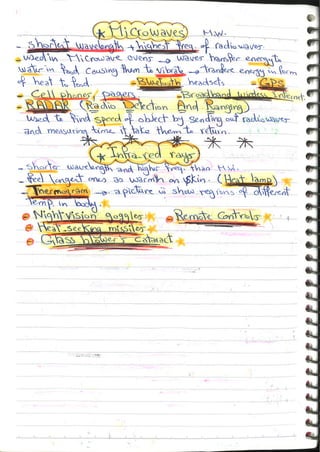 Microwaves M.W.
- Shortest wavelength + highest freq. of radiowaves
- Used in Microwave ovens → waves transfer energy to
water in food causing them to vibrate → transfer energy in form
of heat to food. - Bluetooth headsets - GPS
- Cell phones/pagers - Broadband Wireless Internet.
- RADAR (Radio Detection And Ranging)
used to find speed of object by sending out radiowaves
and measuring time it take them to return.
Infra-red rays
- Shorter wavelength and higher freq. than M.W.
- feel longest ones as warmth on skin. (Heat lamp)
- Thermogram → a picture show regions of different
temp. in body.
Night vision goggles Remote Controls
Heat-seeking missiles
Glass blower's cataract